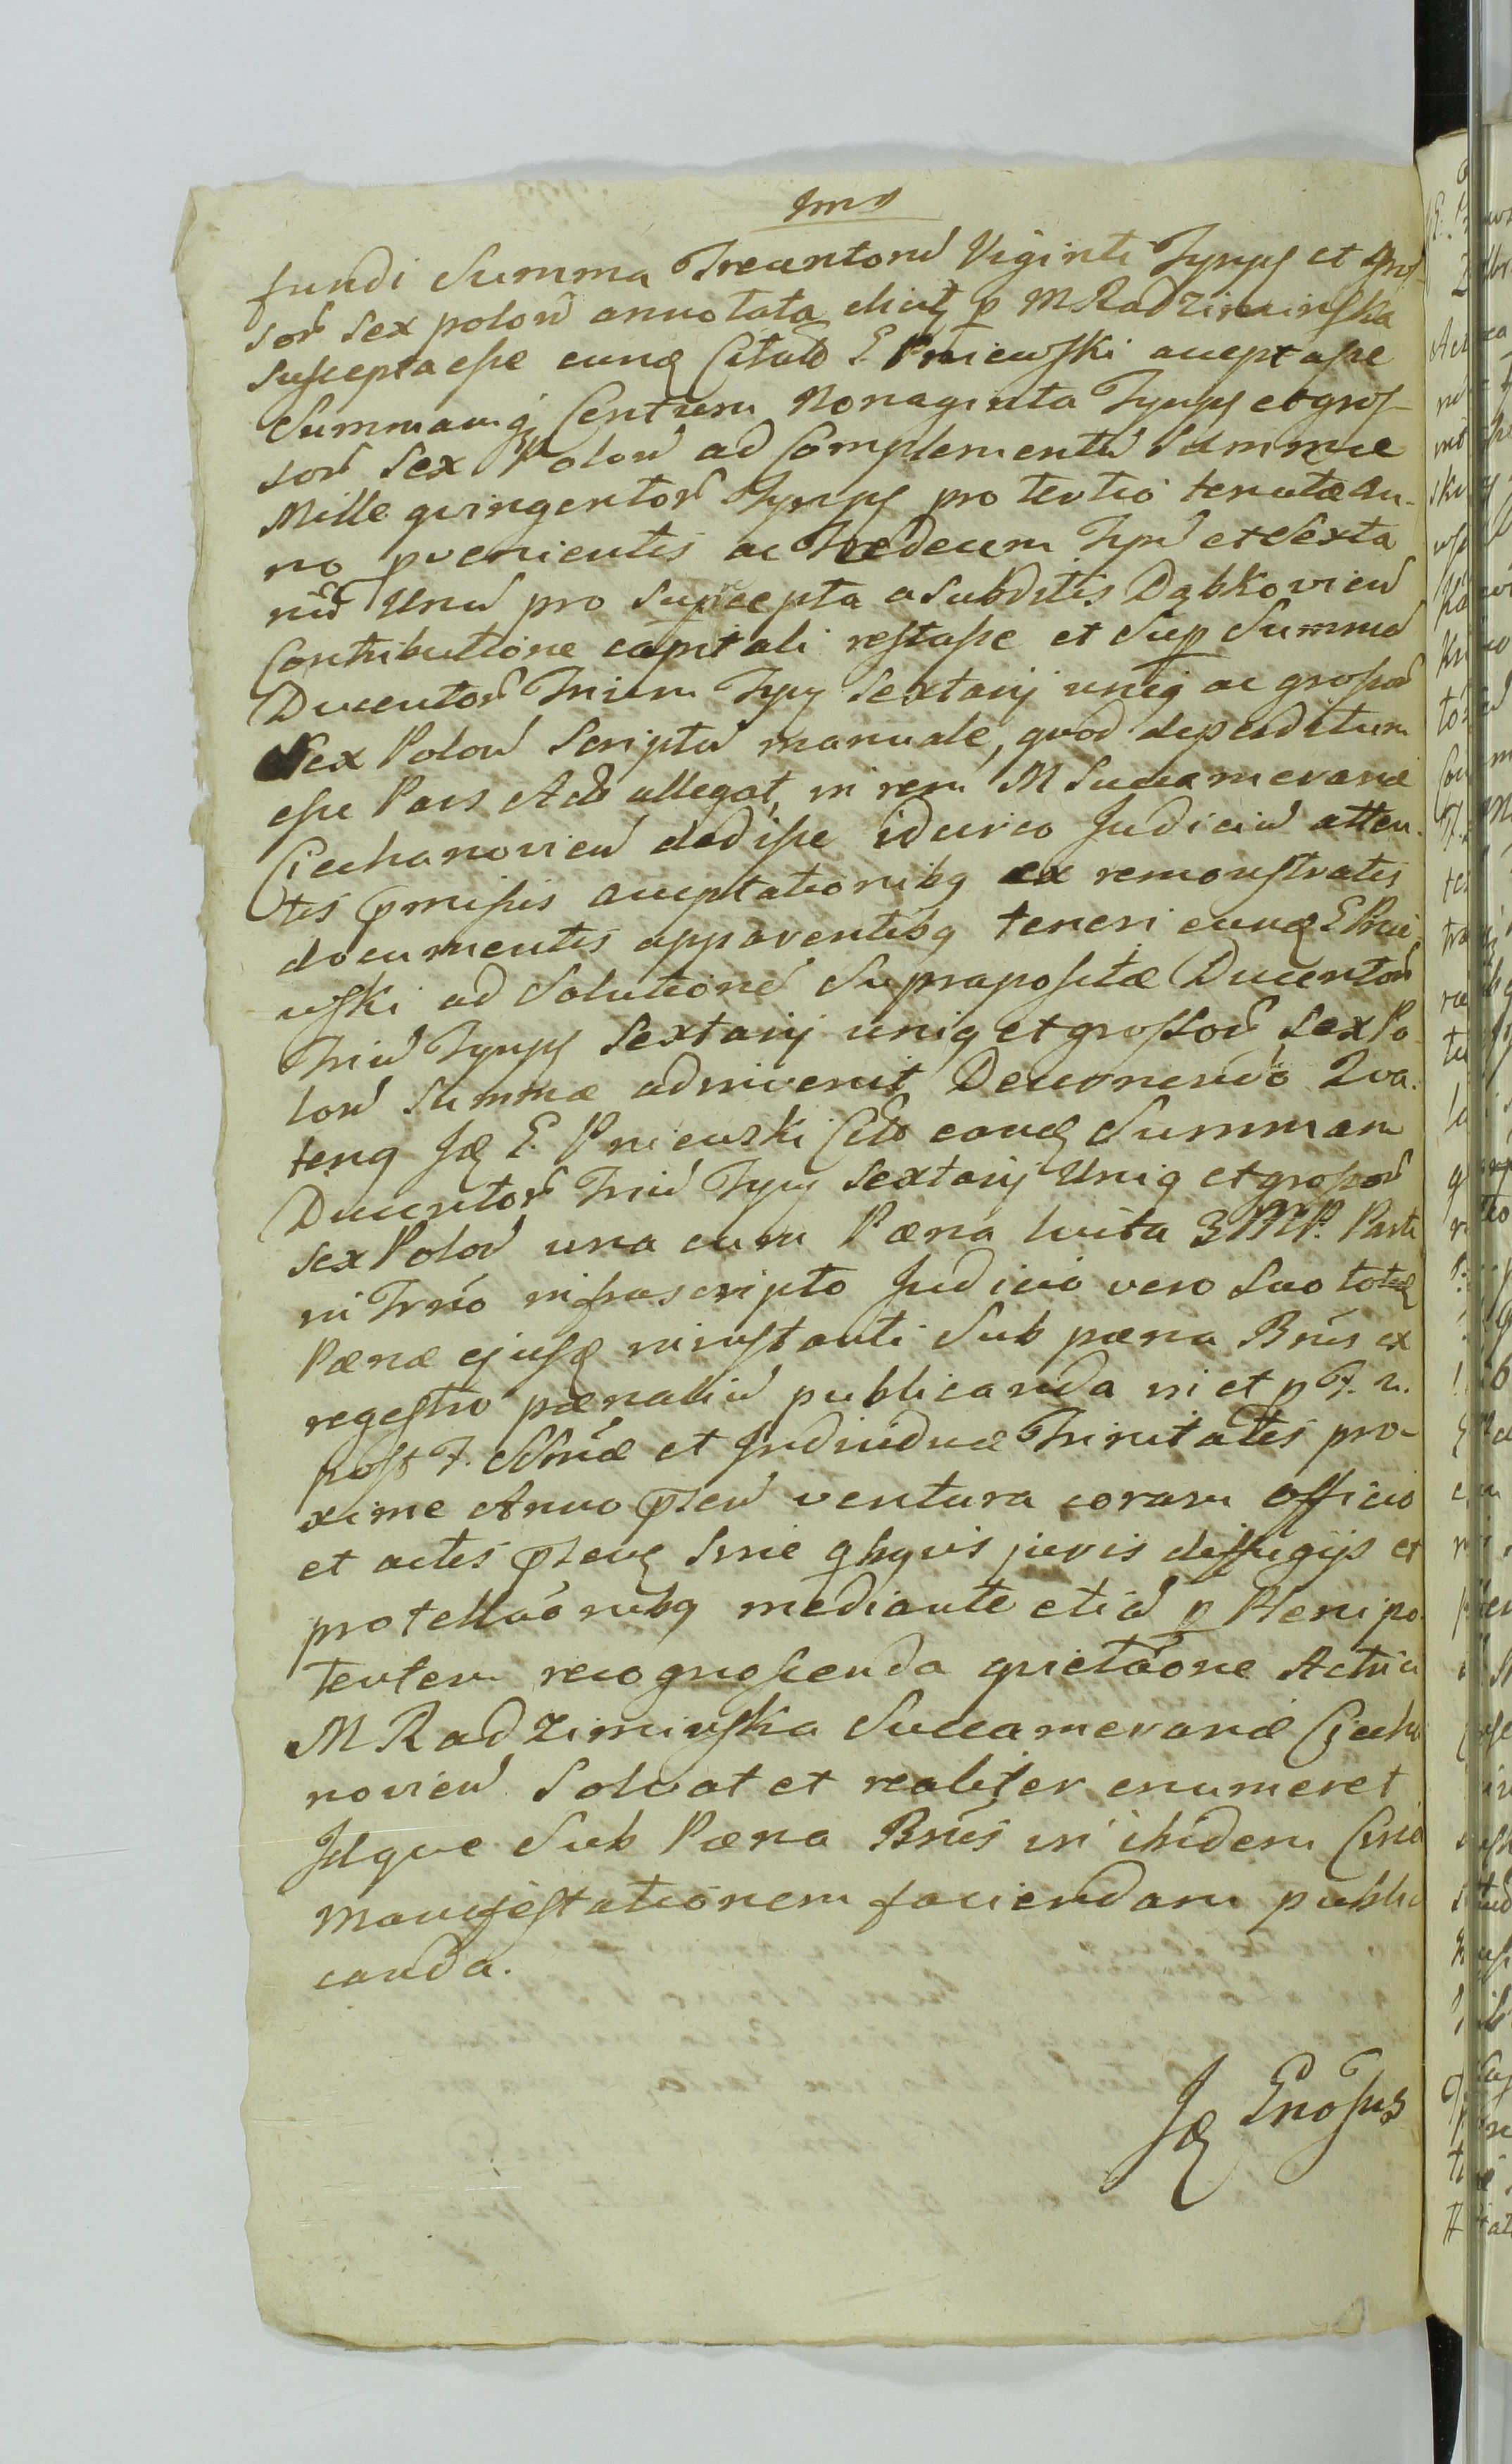 fundi Summa Trecentorũ Viginti Tynpf et gros-
sorũ sex polon̄ annotata dicit p M Radziminska
suscepta esse eunq̄ Citatũ G. Pniewski acceptasse
Summamq̨ Centum Nonaginta Tynpf et gros-
sorũ sex Polon̄ ad Complementũ Summae
Mille quingentorũ Tynpf pro tertio tenutae an-
no pvenientis ac Tredecem Tynf et Sexta
riũ Unũ pro suscepta a subditis Dąbkovien̄
Contributione capitali restasse et Sup Summã
Ducentorũ Trium Tynf Sextarij uniq ac grossorũ
Sex Polon̄ Scriptũ manuale, quod deperditum
esse Pars Actõ allegat, in rem M Succamerariae
Ciechanovien̄ dedisse idcirco Judiciũ atten-
tis p̄missis acceptationibq ex remonstratis
documentis apparentibq teneri eunq̄ G Pnie
wski ad Solutionē Supra positae Ducentorũ
Triũ Tynpf Sextarij uniq et grossorũ Sex Po
lon̄ Summae adinvenit Decernendo Qua-
tenq Jq̄ G. Pniewski Cittõ eandq̄ Summam
Ducentorũ Triũ Tynf Sextarij Uniq et grossorũ
sex Polon̄ una cum Paena luita 3 M P. Parti
in Trm̄o infrascripto Judicio vero Suo totq̄
Paenae ejusq̄ in instanti Sub paena Bn̄is ex
regestro paenaliũ publicanda in et p F. 2.
post F. SSmae et Individuae Trinitatis pro-
xime Anno p̄sen̄ ventura coram officio
et actis p̄senq̄ Sine qbqvis juris diffugijs et
protellãõnibq mediante etiã p Plenipo-
tentem recognoscenda quietãõne Actrici
M Radziminska Succamerariae Ciecha
novien̄ Solvat et realiter enumeret
Idque Sub Paena Bn̄is in ibidem
Manifestationem faciendam publi
canda.
Jq̄ Gnosus